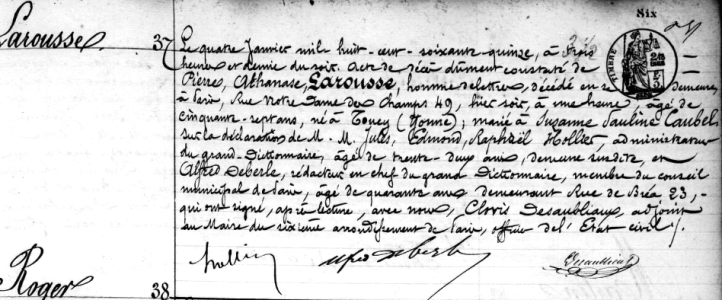 Six
Larousse
37
Le quatre Janvier mil huit-cent-soixante-quinze, à trois
heures et demie du soir. Acte de décès dûment constaté de
Pierre, Athanase, Larousse, homme de lettres, décédé en sa demeure
à Paris, Rue Notre Dame des Champs 49, hier soir, à une heure, âgé de
cinquante-sept ans, né à Toucy (Yonne); marié à Suzanne Pauline Caubel.
Sur la déclaration de M. M. Jules, Edmond, Raphaël Hollier, administrateur
du grand-Dictionnaire, âgé de trente-deux ans, demeure susdite, et
Alfred Deberle, rédacteur en chef du grand Dictionnaire, membre du conseil
municipal de Paris, âgé de quarante ans demeurant Rue de Bréa 23,-
qui ont signé, après lecture, avec nous, Clovis Desaubliaux, adjoint
au Maire du sixième arrondissement de Paris, officier de l'Etat civil /.
Hollier Alfred Deberle Desaubliaux
Roger
38